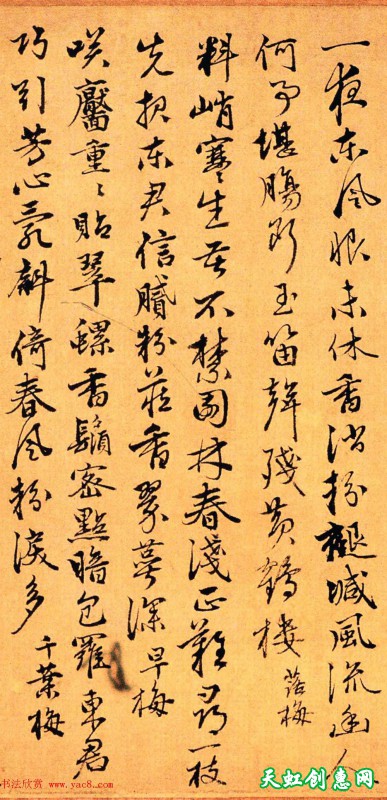 一夜東風恨未休香消粉褪減風流幽人
何事堪腸斷玉笛聲殘黃鶴樓 落梅
料峭寒生苦不禁園林春淺正難尋一枝
先報東君信膩粉香翠萼深 早梅
咲靨重重貼翠螺香鬚密點暗包羅東君
巧引芳心亂斜倚春風粉淚多 千葉梅
书法欣赏 www.yac8.com
天虹创意网